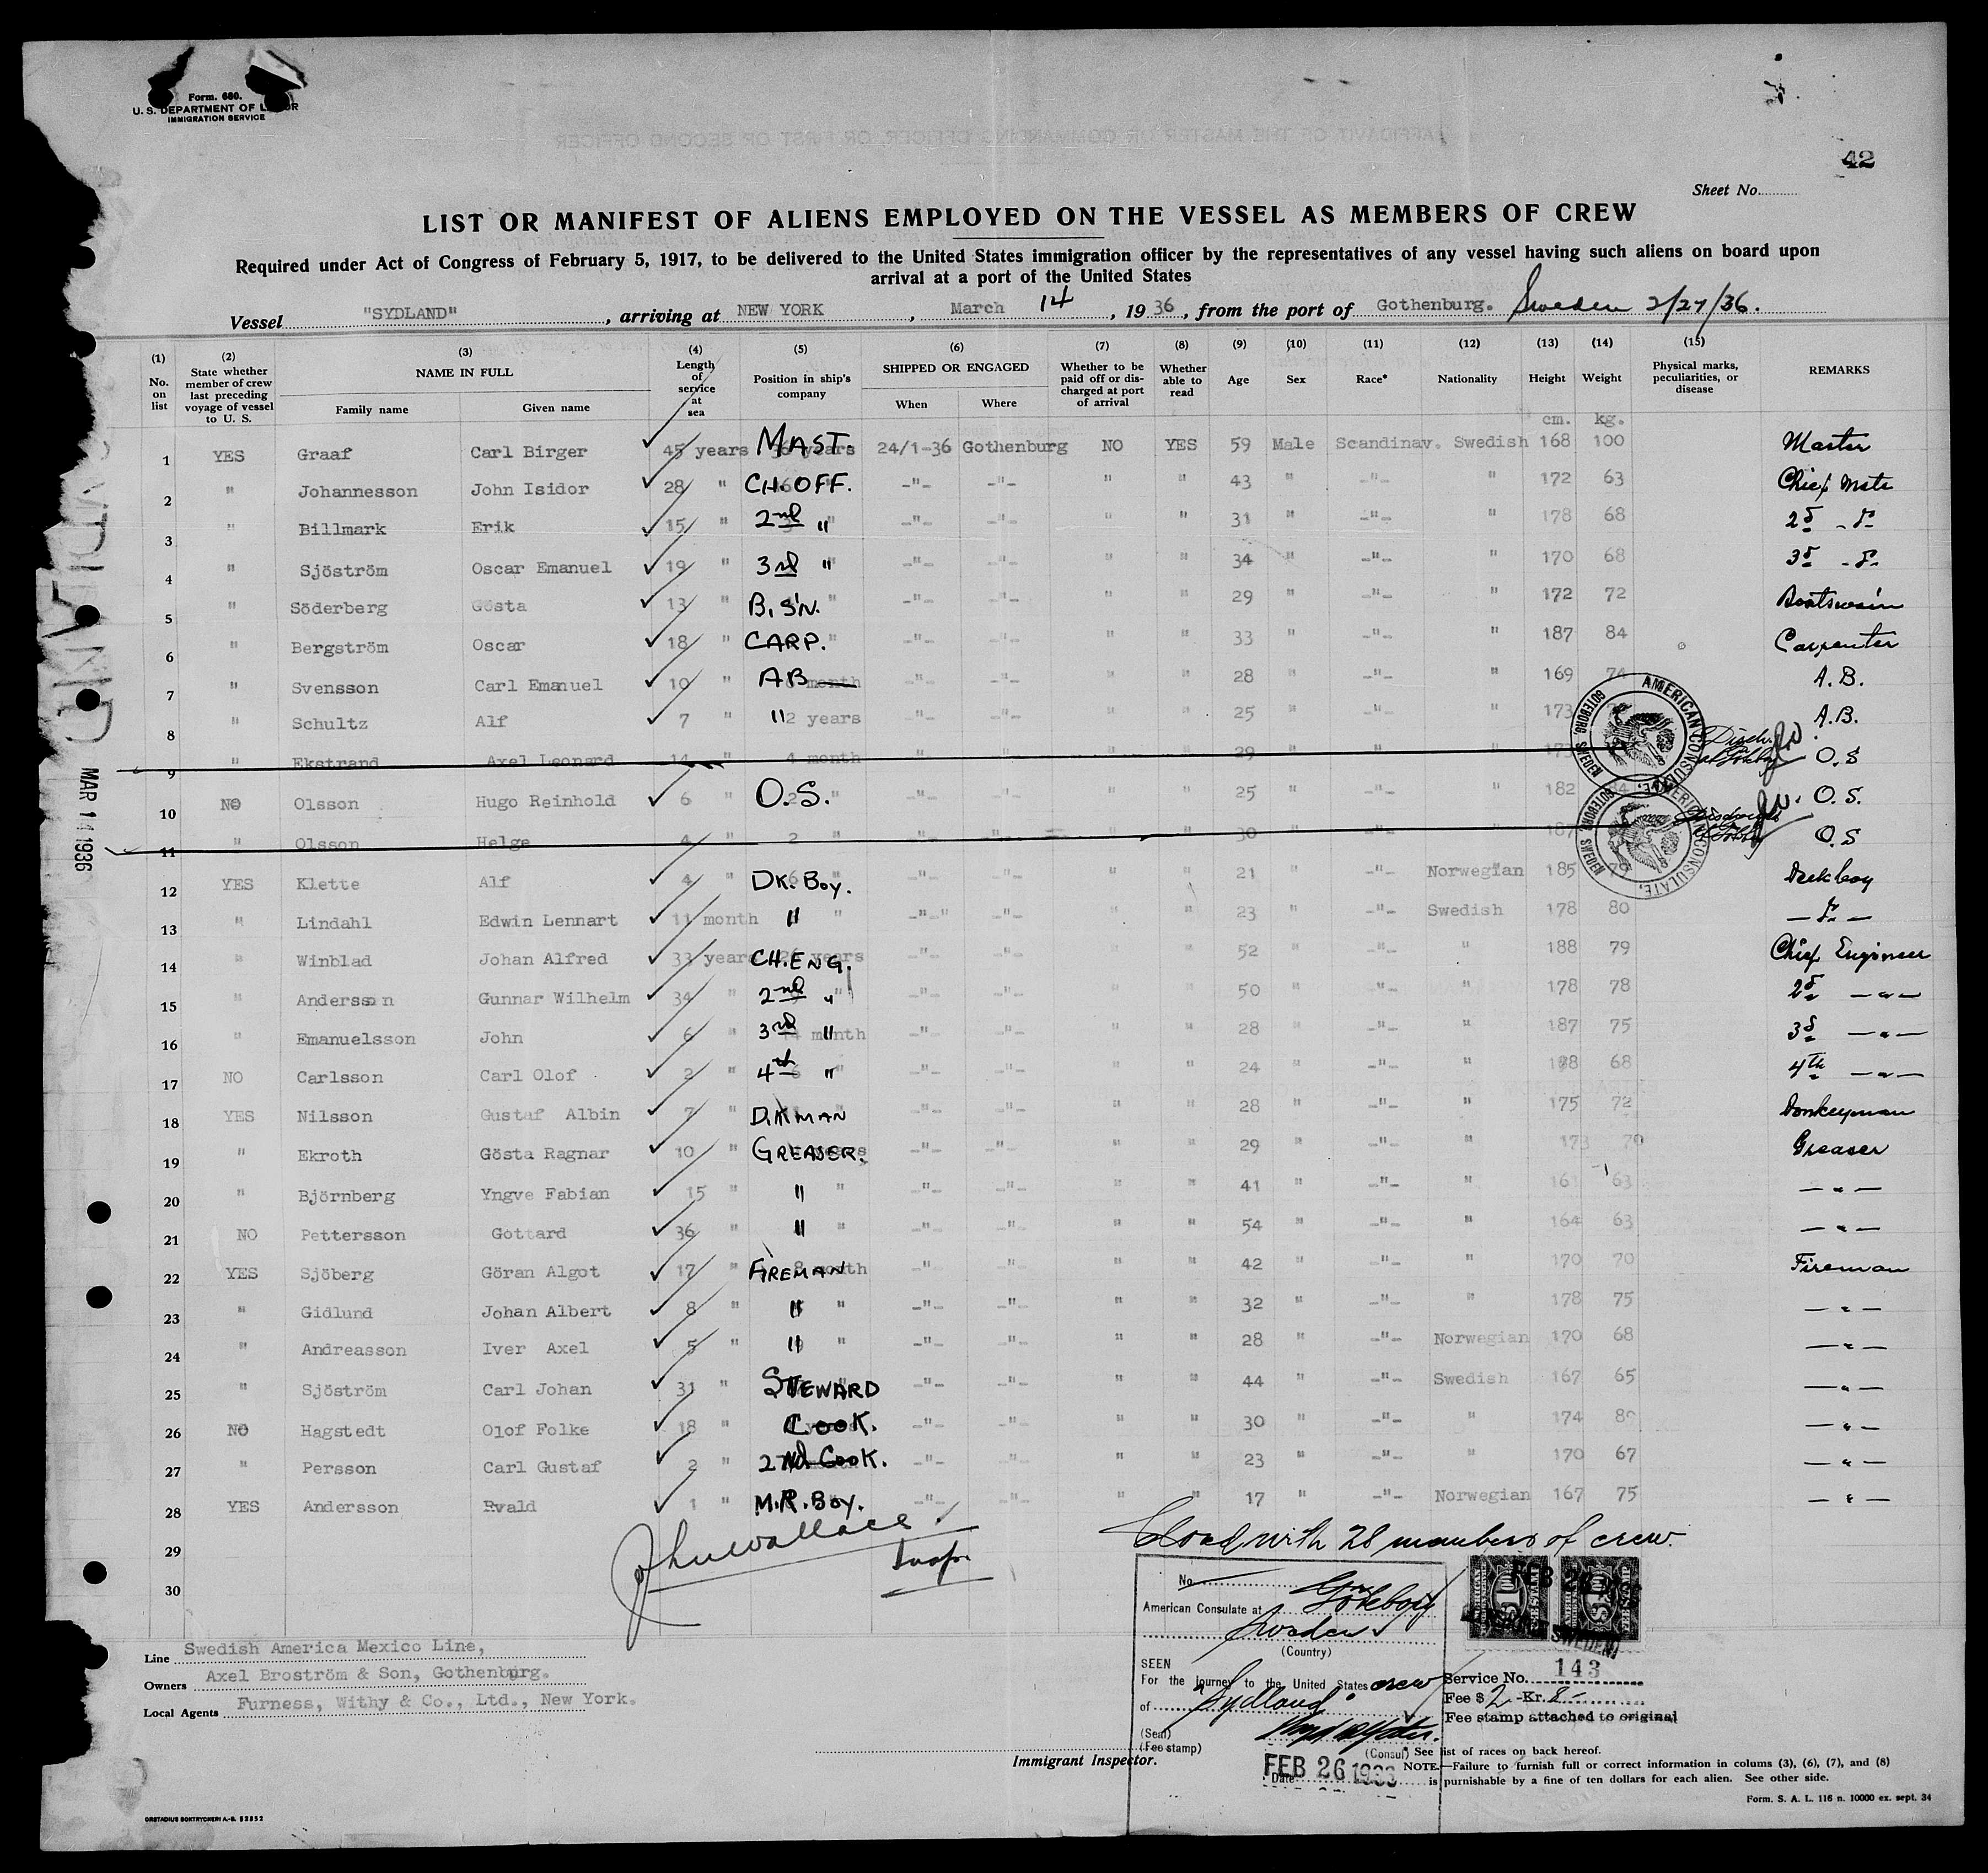 Form. 680.
U. S. DEPARTMENT OF
IMMIGRATION SERVICE
42
Sheet No.
LIST OR MANIFEST OF ALIENS EMPLOYED ON THE VESSEL AS MEMBERS OF CREW
Required under Act of Congress of February 5, 1917, to be delivered to the United States immigration officer by the representatives of any vessel having such aliens on board upon
arrival at a port of the United States
Vessel "SYDLAND", arriving at NEW YORK, March 14, 1936, from the port of Gothenburg. Sweden 2/27/36.
(1) No. on list (2) State whether member of crew last preceding voyage of vessel to U. S. (3) NAME IN FULL Family name Given name (4) Length of service at sea (5) Position in ship's company (6) SHIPPED OR ENGAGED When Where (7) Whether to be paid off or discharged at port of arrival (8) Whether able to read (9) Age (10) Sex (11) Race* (12) Nationality (13) Height (14) Weight (15) Physical marks, peculiarities, or disease REMARKS
cm. kg.
1 YES Graaf Carl Birger 45 years MAST. 24/1-36 Gothenburg NO YES 59 Male Scandinav. Swedish 168 100 Master
2 " Johannesson John Isidor 28 " CH. OFF. -"- -"- " " 43 " -"- " 172 63 Chief Mate
3 " Billmark Erik 15 " 2nd " -"- -"- " " 31 " -"- " 178 68 2d
4 " Sjöström Oscar Emanuel 19 " 3rd " -"- -"- " " 34 " -"- " 170 68 3d
5 " Söderberg Gösta 13 " B. S'N. -"- -"- " " 29 " -"- " 172 72 Boatswain
6 " Bergström Oscar 18 " CARP. -"- -"- " " 33 " -"- " 187 84 Carpenter
7 " Svensson Carl Emanuel 10 " AB month -"- -"- " " 28 " -"- " 169 74 A.B.
8 " Schultz Alf 7 " " 2 years -"- -"- " " 25 " -"- " 173 A.B.
9 " Ekstrand Axel Leonard 14 " 4 month " " 29 " " " 173 O.S
10 NO Olsson Hugo Reinhold 6 " O.S. -"- -"- " " 25 " -"- " 182 84 O.S.
11 " Olsson Helge 4 " 2 " " " 30 " " " 187 O.S
12 YES Klette Alf 4 " DK. BOY. -"- -"- " " 21 " -"- Norwegian 185 79 Deckboy
13 " Lindahl Edwin Lennart 11 month " " -"- -"- " " 23 " -"- Swedish 178 80
14 " Winblad Johan Alfred 33 years CH. ENG. -"- -"- " " 52 " -"- " 188 79 Chief Engineer
15 " Andersson Gunnar Wilhelm 34 " 2nd " -"- -"- " " 50 " -"- " 178 78 2d -"-
16 " Emanuelsson John 6 " 3rd " month -"- -"- " " 28 " -"- " 187 75 3d -"-
17 NO Carlsson Carl Olof 2 " 4th " -"- -"- " " 24 " -"- " 188 68 4th -"-
18 YES Nilsson Gustaf Albin 7 " D.K MAN -"- -"- " " 28 " -"- " 175 72 Donkeyman
19 " Ekroth Gösta Ragnar 10 " GREASER. -"- -"- " " 29 " -"- " 173 70 Greaser
20 " Björnberg Yngve Fabian 15 " " " -"- -"- " " 41 " -"- " 161 63 -"-
21 NO Pettersson Gottard 36 " " " -"- -"- " " 54 " -"- " 164 63 -"-
22 YES Sjöberg Göran Algot 17 " FIREMAN -"- -"- " " 42 " -"- " 170 70 Fireman
23 " Gidlund Johan Albert 8 " " " -"- -"- " " 32 " -"- " 178 75 -"-
24 " Andreasson Iver Axel 5 " " " -"- -"- " " 28 " -"- Norwegian 170 68 -"-
25 " Sjöström Carl Johan 31 " STEWARD -"- -"- " " 44 " -"- Swedish 167 65 -"-
26 NO Hagstedt Olof Folke 18 " COOK. -"- -"- " " 30 " -"- " 174 80 -"-
27 " Persson Carl Gustaf 2 " 2ND. COOK. -"- -"- " " 23 " -"- " 170 67 -"-
28 YES Andersson Evald 1 " M.R. BOY. -"- -"- " " 17 " -"- Norwegian 167 75 -"-
29
30
SYDLAND
MAR 14 1936
AMERICAN CONSULATE, GOTEBORG, SWEDEN
AMERICAN CONSULATE, GOTEBORG, SWEDEN
John Wallace
Insp.
Closed with 28 members of crew.
No.
American Consulate at Göteborg
Sweden
(Country)
SEEN
For the journey to the United States crew
of "Sydland"
(Seal)
(Fee stamp)
(Consul)
Date FEB 26 1936
FEB 26 1936
SWEDEN
Service No. 143
Fee $ 2 -Kr. 8-
Fee stamp attached to original
Line Swedish America Mexico Line,
Owners Axel Broström & Son, Gothenburg.
Local Agents Furness, Withy & Co., Ltd., New York.
Immigrant Inspector.
* See list of races on back hereof.
NOTE.—Failure to furnish full or correct information in colums (3), (6), (7), and (8)
is purnishable by a fine of ten dollars for each alien. See other side.
Form. S. A. L. 116 n. 10000 ex. sept. 34
ORSTADIUS BOKTRYCKERI A.-B. 52852